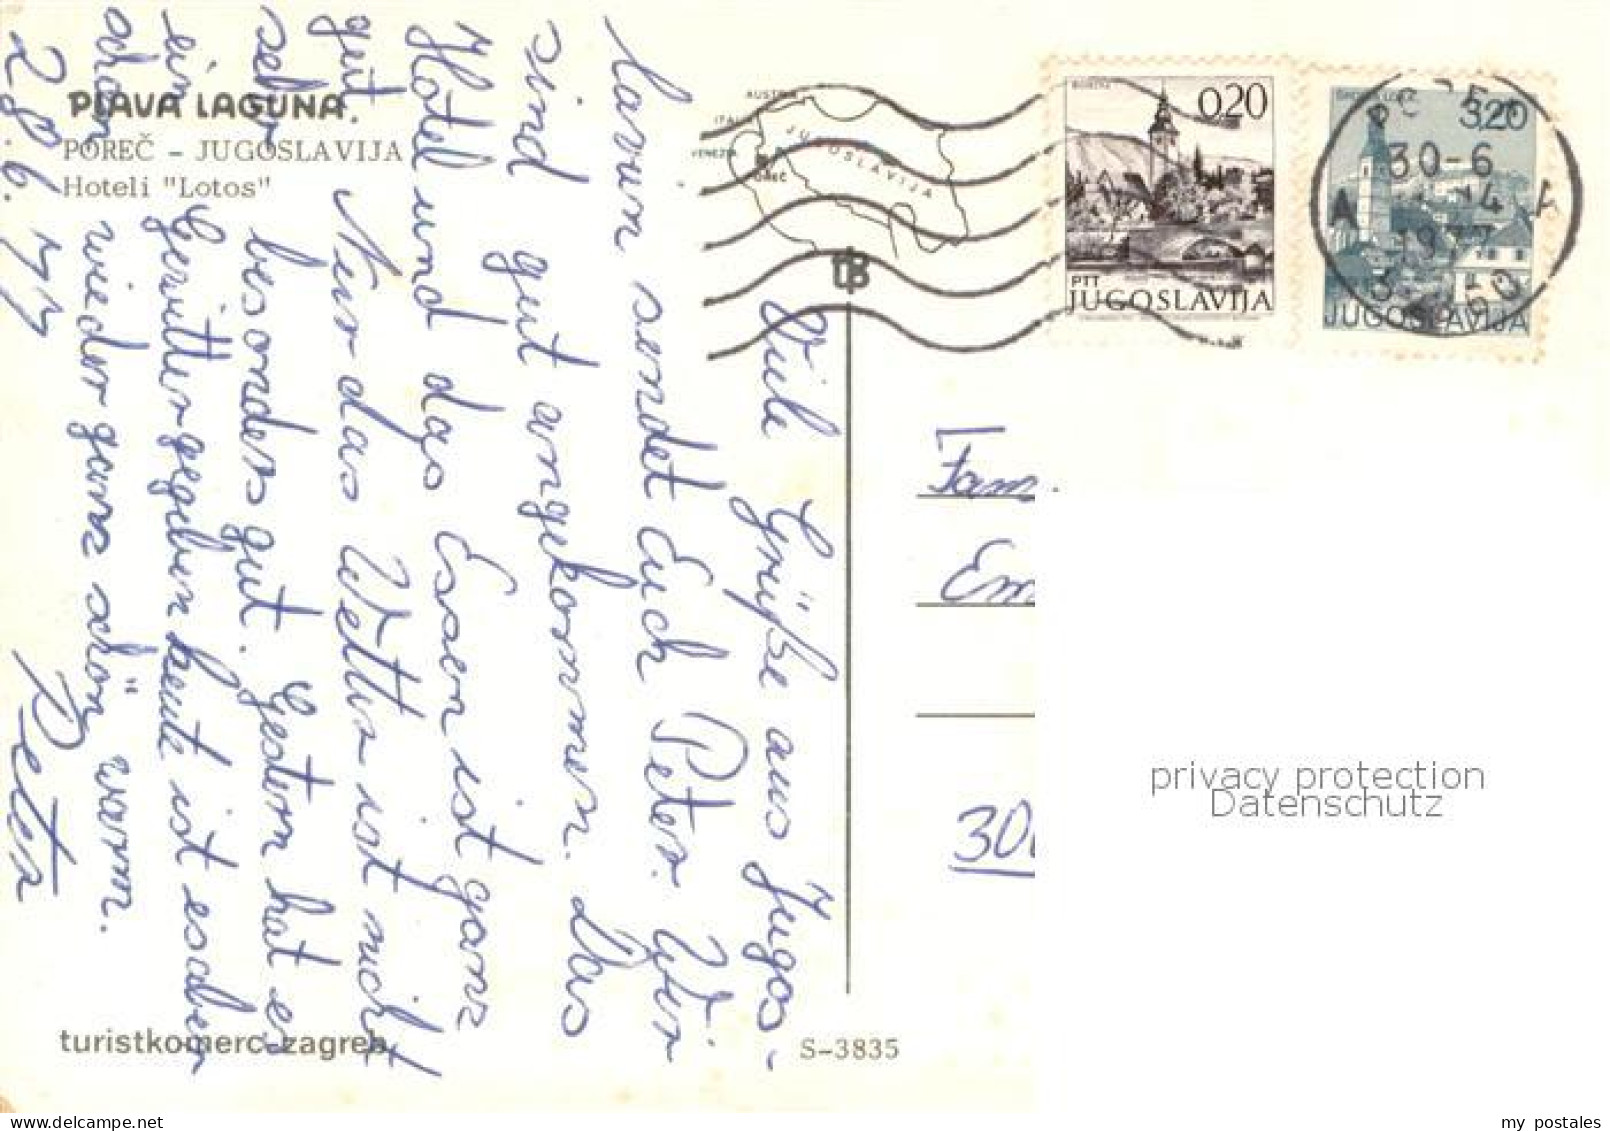 PLAVA LAGUNA.
POREČ - JUGOSLAVIJA
Hoteli "Lotos"
Viele Grüße aus Jugos-
lavien sendet Euch Peter. Wir
sind gut angekommen. Das
Hotel und das Essen ist ganz
gut. Nur das Wetter ist nicht
sehr besonders gut. Gestern hat es
ein Gewitter gegeben heute ist es aber
schon wieder ganz schön warm.
28.6.77 Peter
turistkomerc-zagreb
S-3835
AUSTRIA
VENEZIA
POREČ
JUGOSLAVIJA
0,20
PTT
JUGOSLAVIJA
3,20
JUGOSLAVIJA
30-6
Fam.
Em
300
privacy protection
Datenschutz
delcampe.net
my_postales